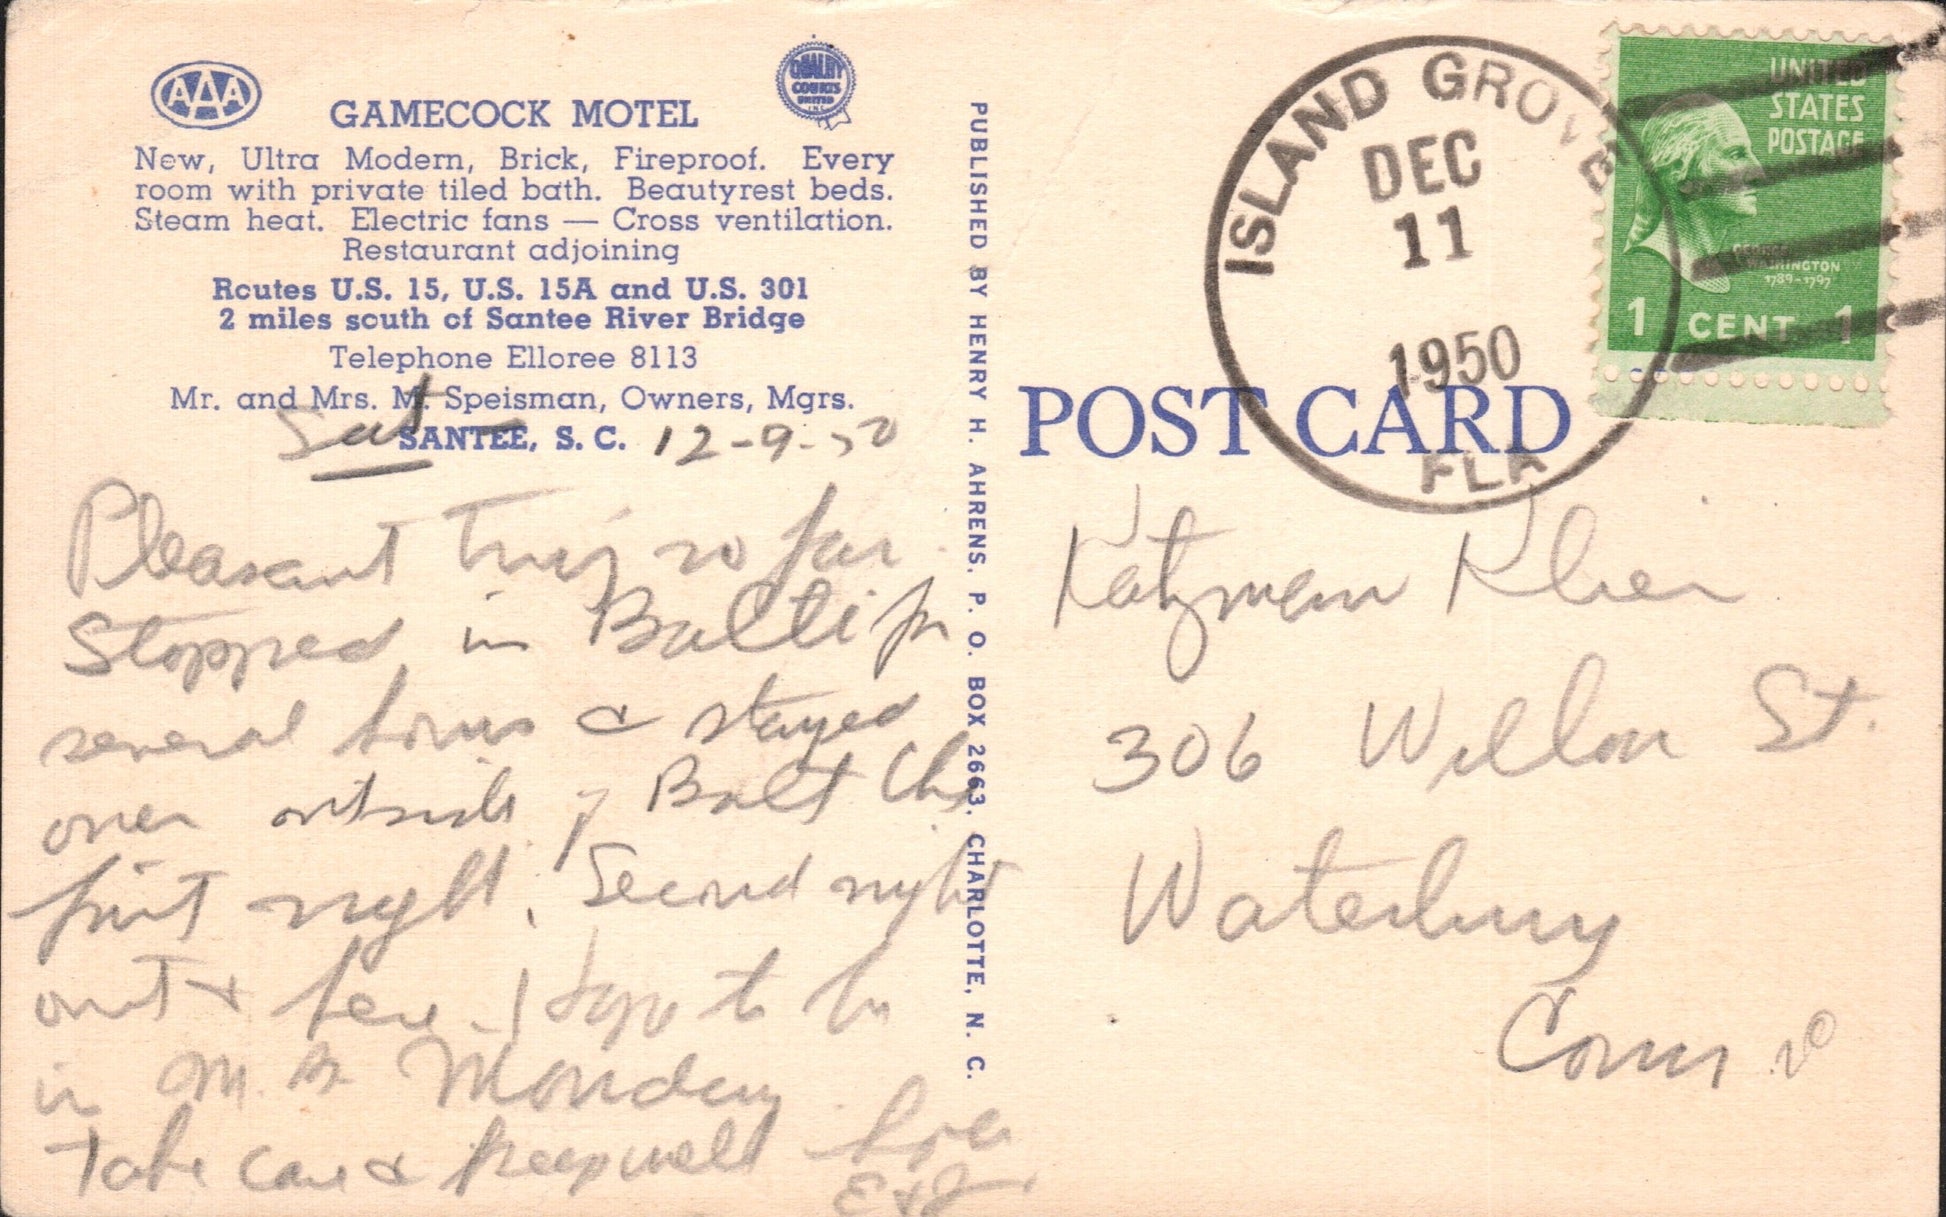 AAA
QUALITY
COURTS
UNITED
INC
GAMECOCK MOTEL
New, Ultra Modern, Brick, Fireproof. Every
room with private tiled bath. Beautyrest beds.
Steam heat. Electric fans — Cross ventilation.
Restaurant adjoining
Routes U.S. 15, U.S. 15A and U.S. 301
2 miles south of Santee River Bridge
Telephone Elloree 8113
Mr. and Mrs. M. Speisman, Owners, Mgrs.
SANTEE, S. C.
Sat - 12-9-50
Pleasant Trip so far.
Stopped in Balti for
several hours & stayed
over outside of Balt
first night. Second night
out & here. I hope to be
in M. B. Monday
Take care & keep well Love
E & J
PUBLISHED BY HENRY H. AHRENS, P. O. BOX 2663, CHARLOTTE, N. C.
POST CARD
ISLAND GROVE
DEC
11
1950
FLA
UNITED
STATES
POSTAGE
GEORGE
WASHINGTON
1789-1797
1 CENT 1
Katzman
306 Willow St.
Waterbury
Conn 20